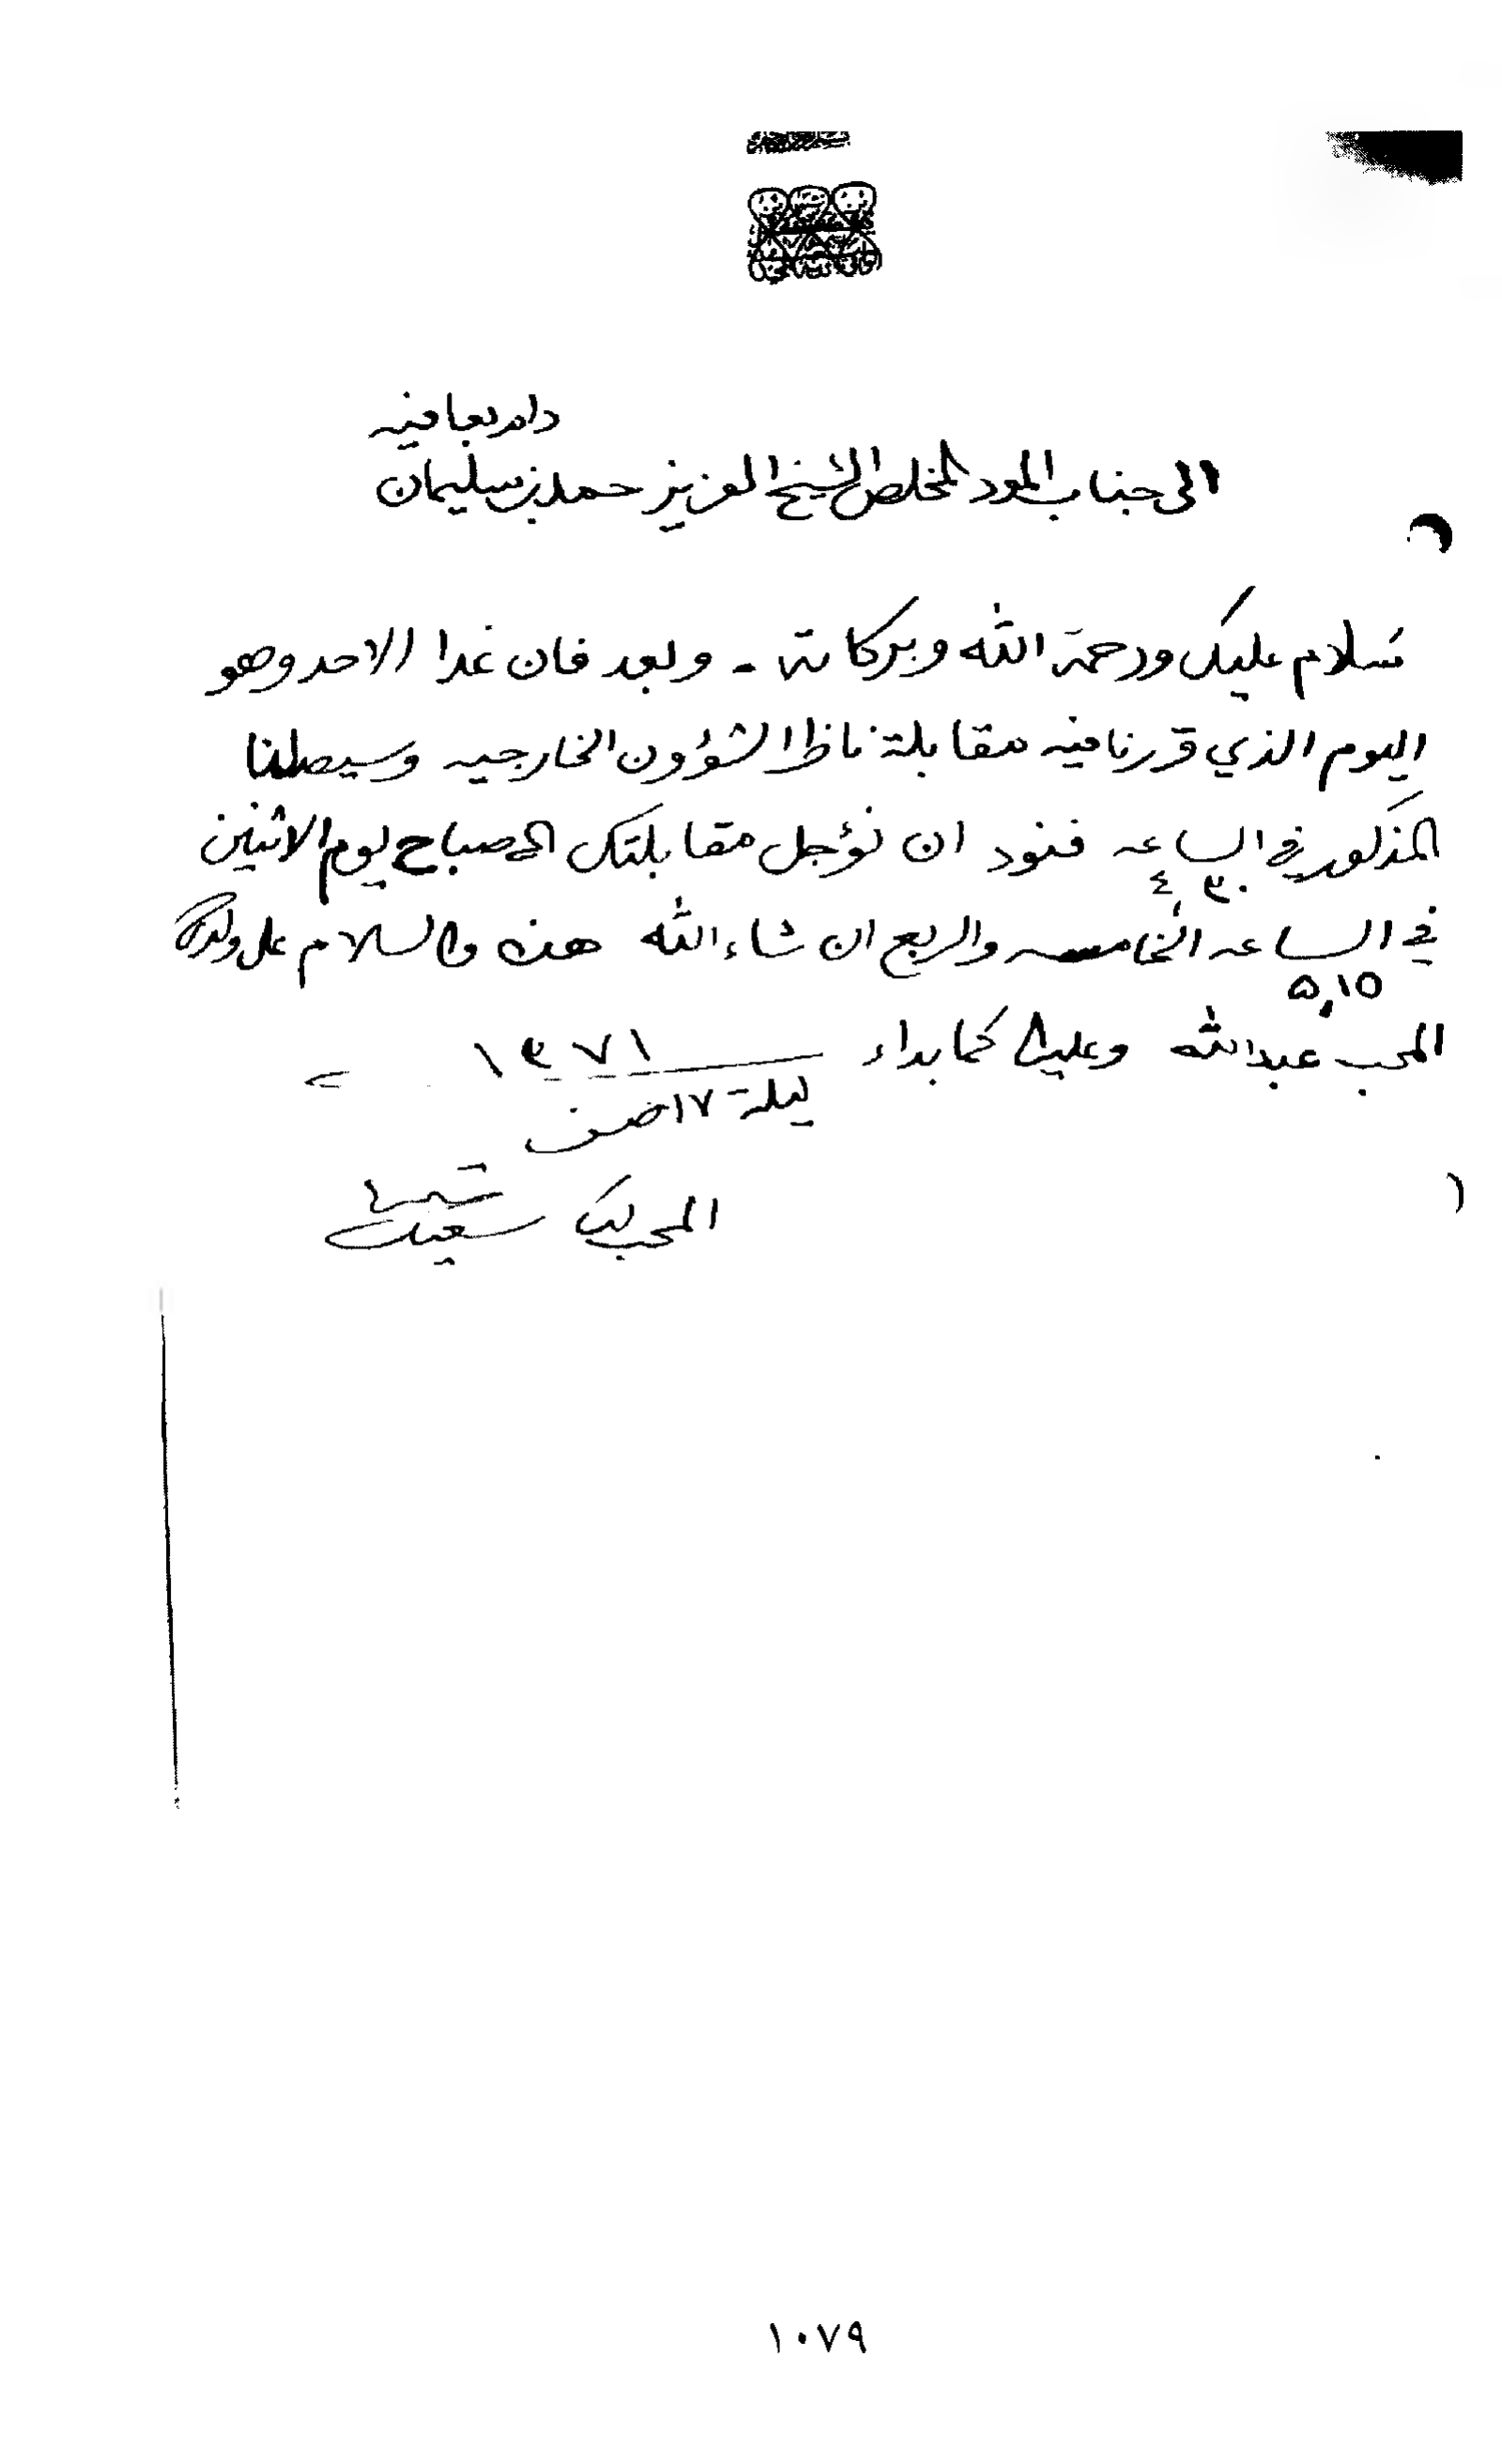 دام بعافيه
الى جناب المود المخلص الشيخ العزيز حمد بن سليمان
سلام عليك ورحمة الله وبركاته - وبعد فان غدا الاحد وهو
اليوم الذي قررنا فيه مقابلة ناظر الشؤون الخارجيه وسيصلنا
المذكور في الساعه فنود ان نؤجل مقابلتك الى صباح يوم الاثنين
٤,٣٠
في الساعه الخامسه والربع ان شاء الله هذه والسلام على ولدك
٥,١٥
المحب عبدالله وعليك كما بداء ١٣٧١
ليلة ١٧ صفر
المحب لك سعيد
١٠٧٩